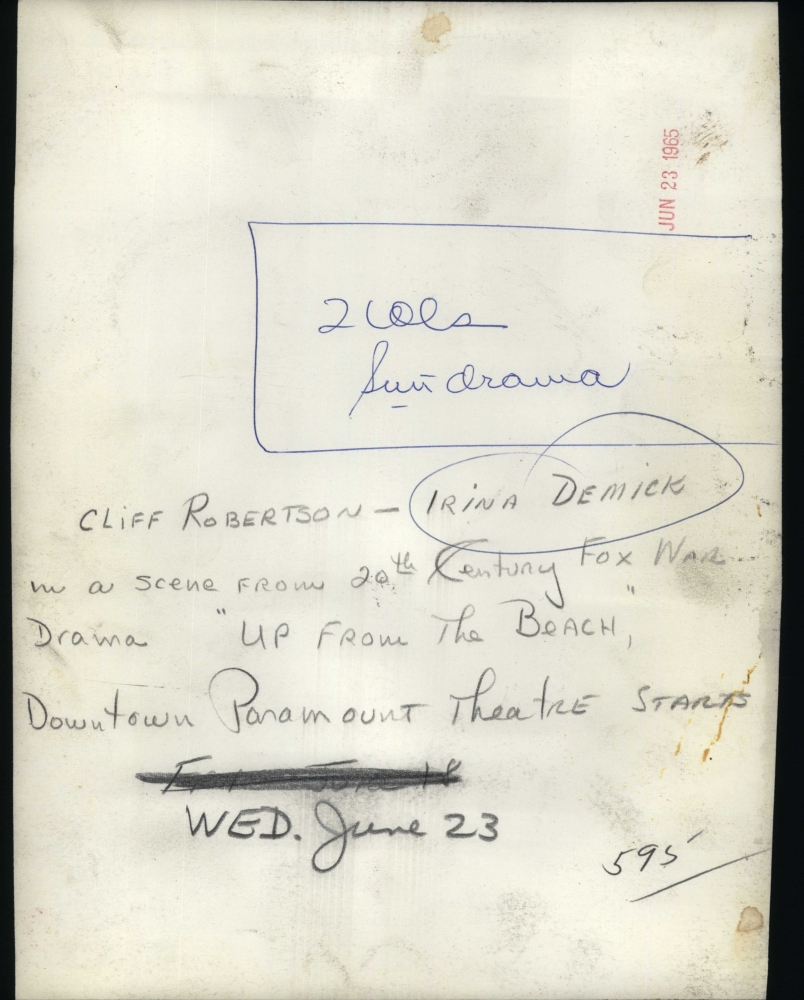 JUN 23 1965
2 Cols
Sun drama
CLIFF ROBERTSON — IRINA DEMICK
in a scene from 20th Century Fox War
Drama "UP FROM The BEACH,"
Downtown Paramount Theatre STARTS
Fri June 18
WED. June 23
595